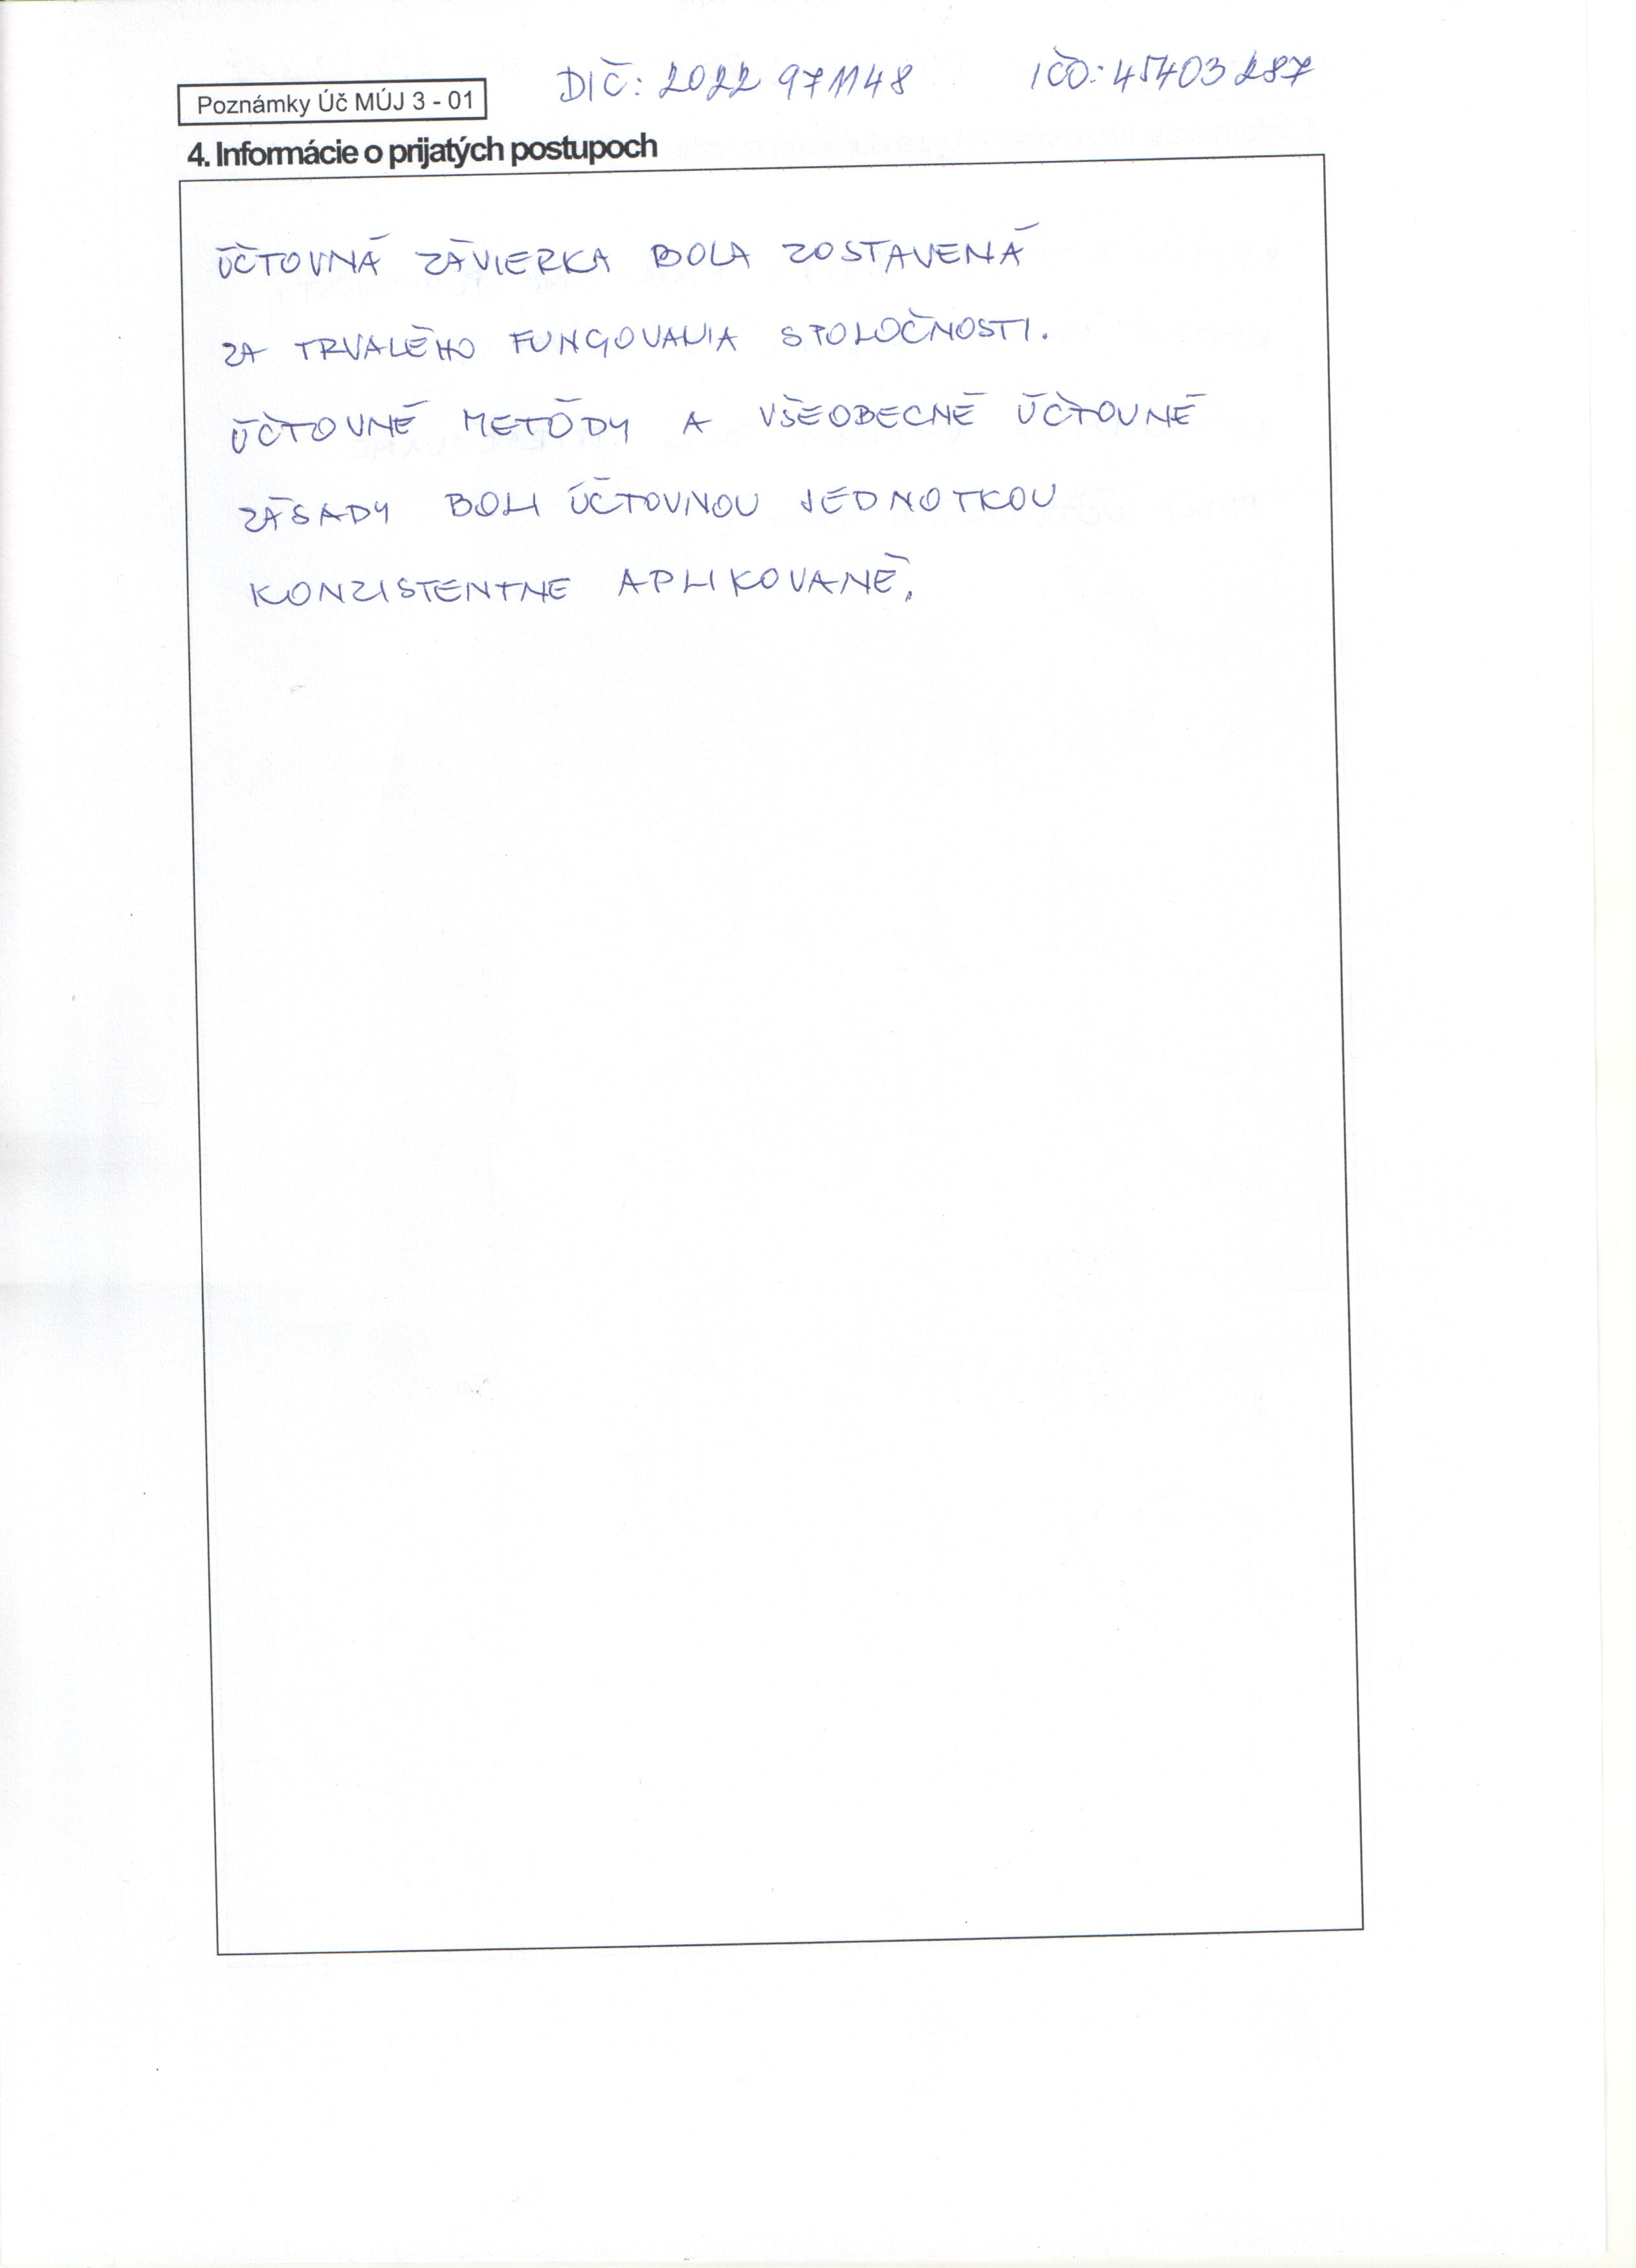 Poznámky Úč MÚJ 3 - 01
DIČ: 2022 971148
IČO: 45403 287
4. Informácie o prijatých postupoch
ÚČTOVNÁ ZÁVIERKA BOLA ZOSTAVENÁ
ZA TRVALÉHO FUNGOVANIA SPOLOČNOSTI.
ÚČTOVNÉ METÓDY A VŠEOBECNÉ ÚČTOVNÉ
ZÁSADY BOLI ÚČTOVNOU JEDNOTKOU
KONZISTENTNE APLIKOVANÉ.